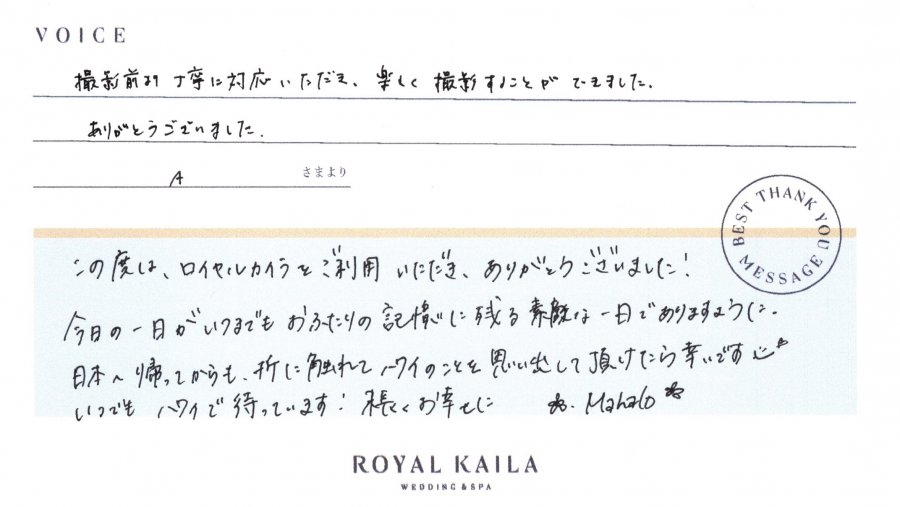 VOICE
撮影前より丁寧に対応いただき、楽しく撮影することができました。
ありがとうございました。
A さまより
BEST THANK YOU MESSAGE
この度は、ロイヤルカイラをご利用いただき、ありがとうございました！
今日の一日がいつまでもおふたりの記憶に残る素敵な一日でありますように。
日本へ帰ってからも、折に触れてハワイのことを思い出して頂けたら幸いです
いつでもハワイで待っています！末長くお幸せに Mahalo
ROYAL KAILA
WEDDING & SPA